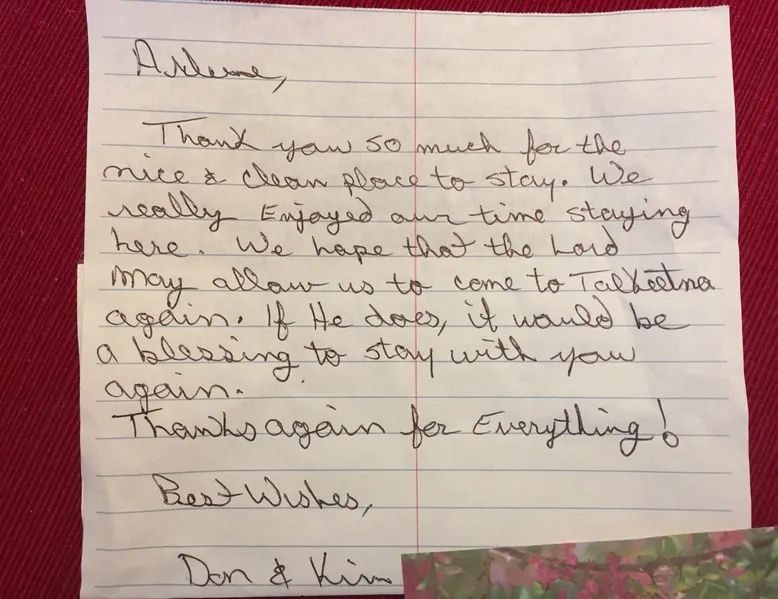 Arlene,
Thank you so much for the
nice & clean place to stay. We
really Enjoyed our time staying
here. We hope that the Lord
may allow us to come to Talkeetna
again. If He does, it would be
a blessing to stay with you
again.
Thanks again for Everything!
Best Wishes,
Don & Kim